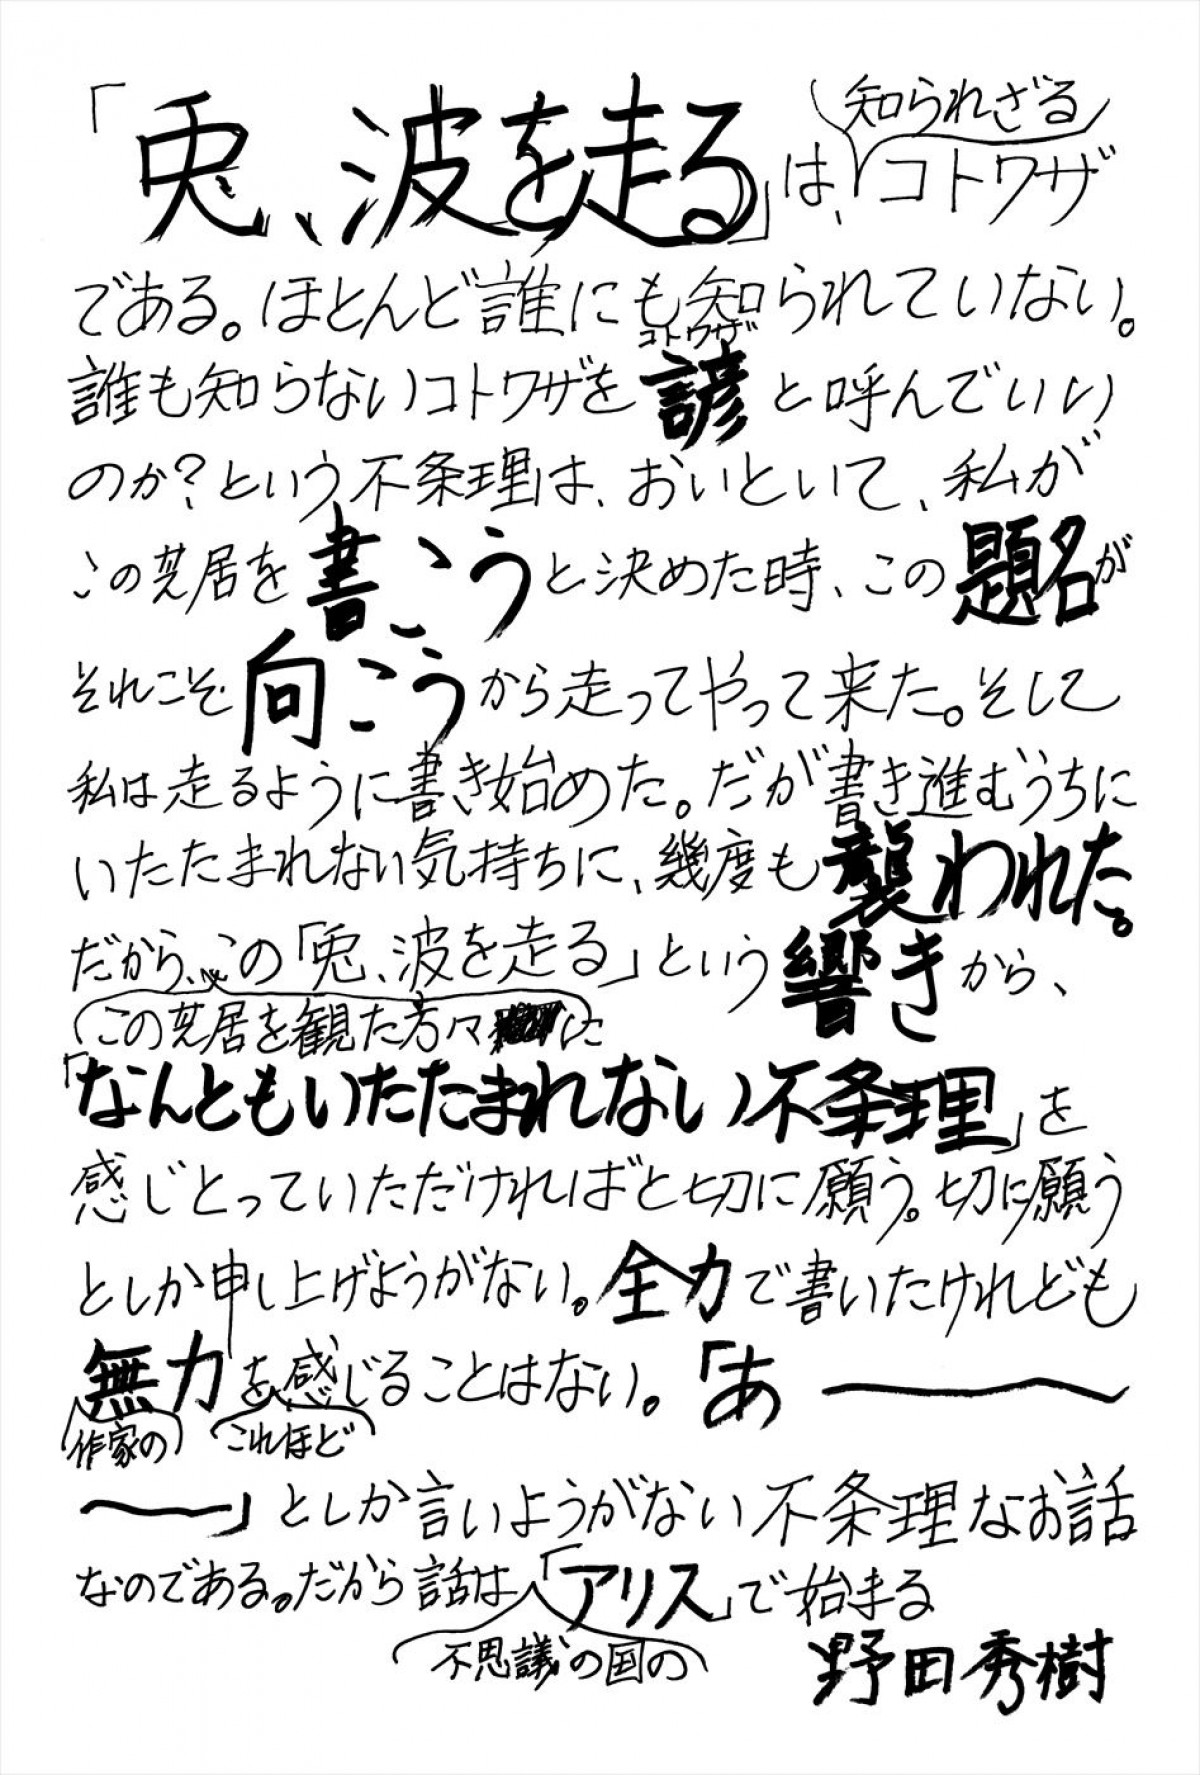 「兎、波を走る」は、知られざるコトワザ
である。ほとんど誰にも知られていない。
誰も知らないコトワザを諺と呼んでいい
コトワザ
のか?という不条理は、おいといて、私が
この芝居を書こうと決めた時、この題名が
それこそ向こうから走ってやって来た。そして
私は走るように書き始めた。だが書き進むうちに
いたたまれない気持ちに、幾度も襲われた。
だから、この「兎、波を走る」という響きから、
この芝居を観た方々に
「なんともいたたまれない不条理」を
感じとっていただければと切に願う。切に願う
としか申し上げようがない。全力で書いたけれども
無力を感じることはない。「あー
作家の これほど
ー」としか言いようがない不条理なお話
なのである。だから話は「アリス」で始まる
不思議の国の
野田秀樹